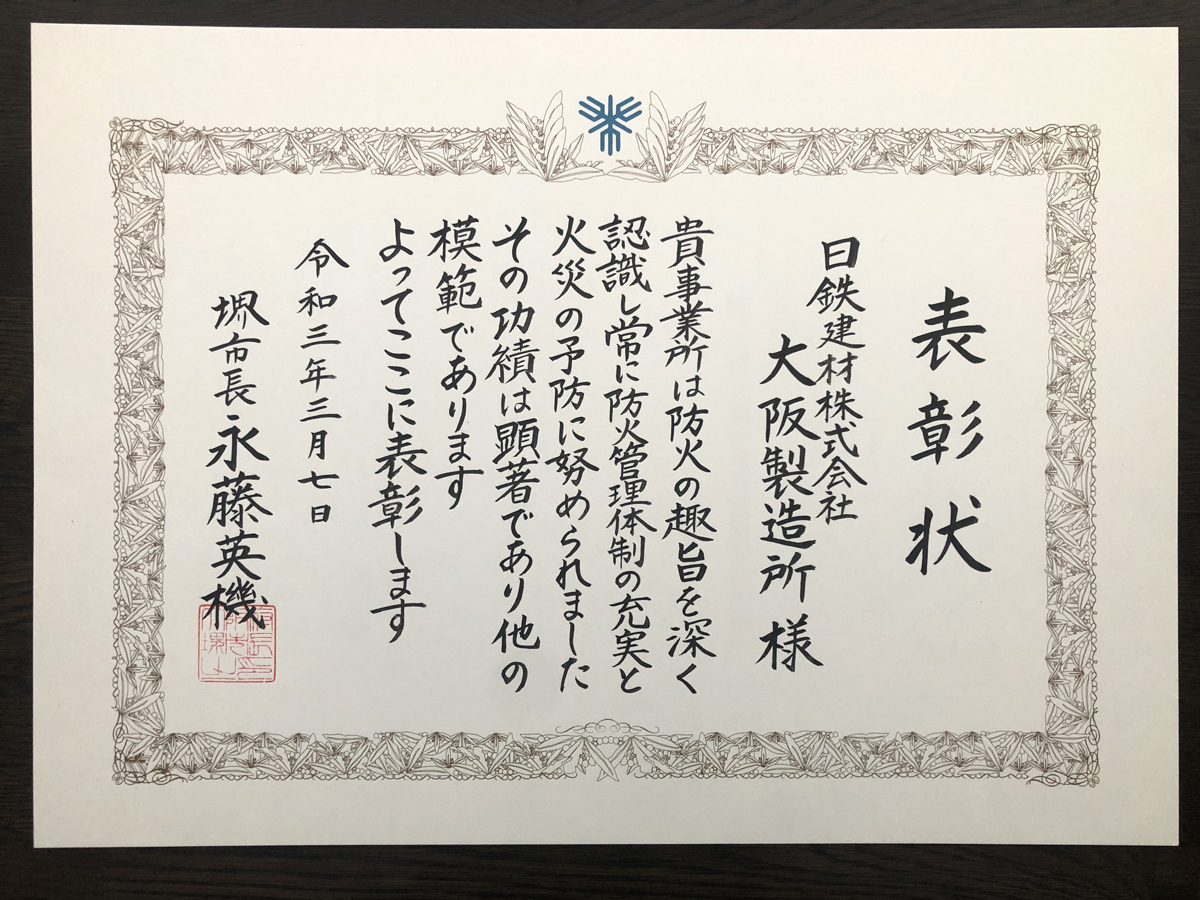 表彰状
日鉄建材株式会社
大阪製造所様
貴事業所は防火の趣旨を深く
認識し常に防火管理体制の充実と
火災の予防に努められました
その功績は顕著であり他の
模範であります
よってここに表彰します
令和三年三月七日
堺市長永藤英機